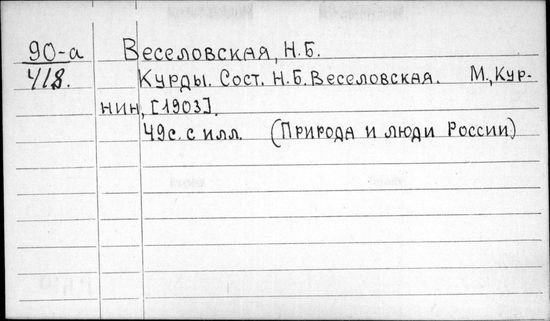 90-а Веселовская, Н.Б.
418. Курды. Сост. Н.Б. Веселовская. М., Кур-
нин, [1903].
49с. с илл. (Природа и люди России)